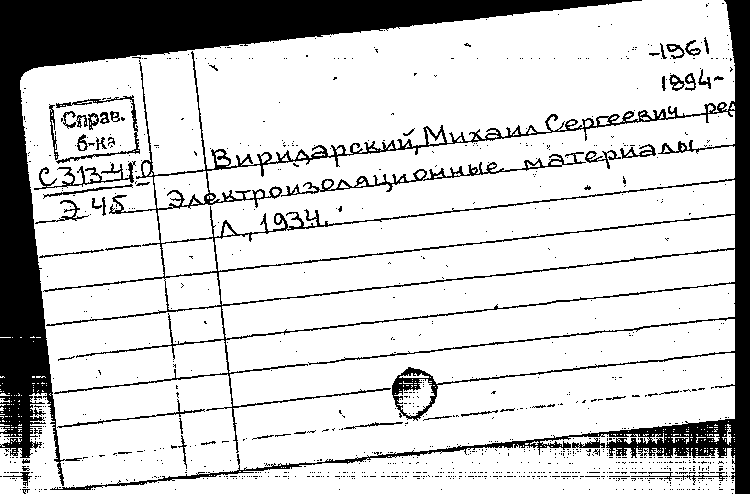 -1961
1894-
Справ.
б-ка
Виридарский, Михаил Сергеевич ред
С313-41.0
Электроизоляционные материалы.
Э 45
Л., 1934.